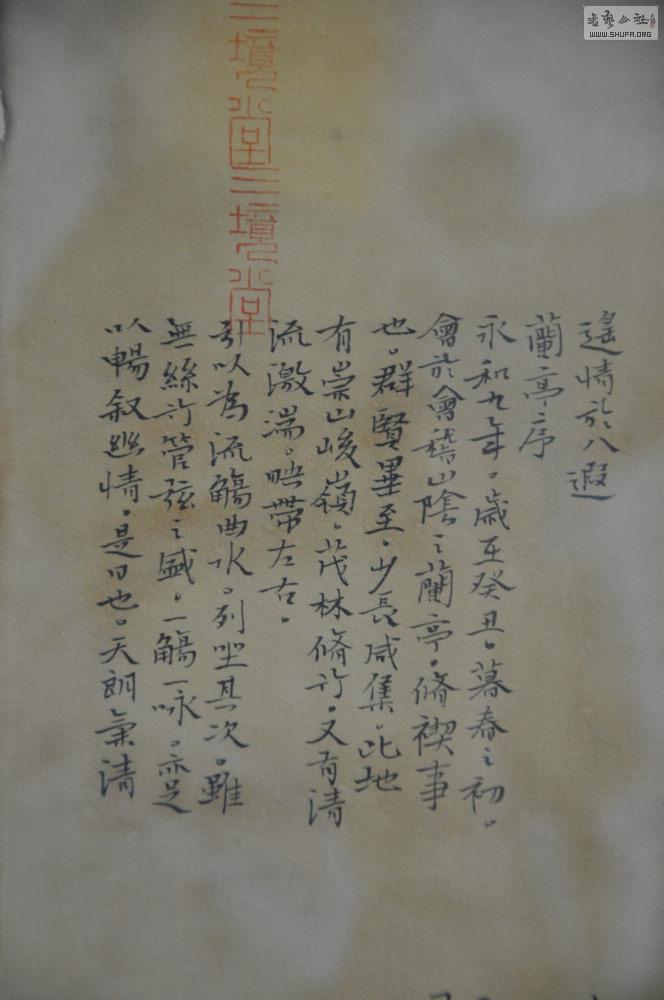 遙情於八遐
蘭亭序
永和九年。歲在癸丑。暮春之初。
會於會稽山陰之蘭亭。脩禊事
也。群賢畢至。少長咸集。此地
有崇山峻嶺。茂林脩竹。又有清
流激湍。映帶左右。
引以為流觴曲水。列坐其次。雖
無絲竹管弦之盛。一觴一咏。亦足
以暢敘幽情。是日也。天朗氣清
三境堂三境堂
書藝公社
WWW.SHUFA.ORG